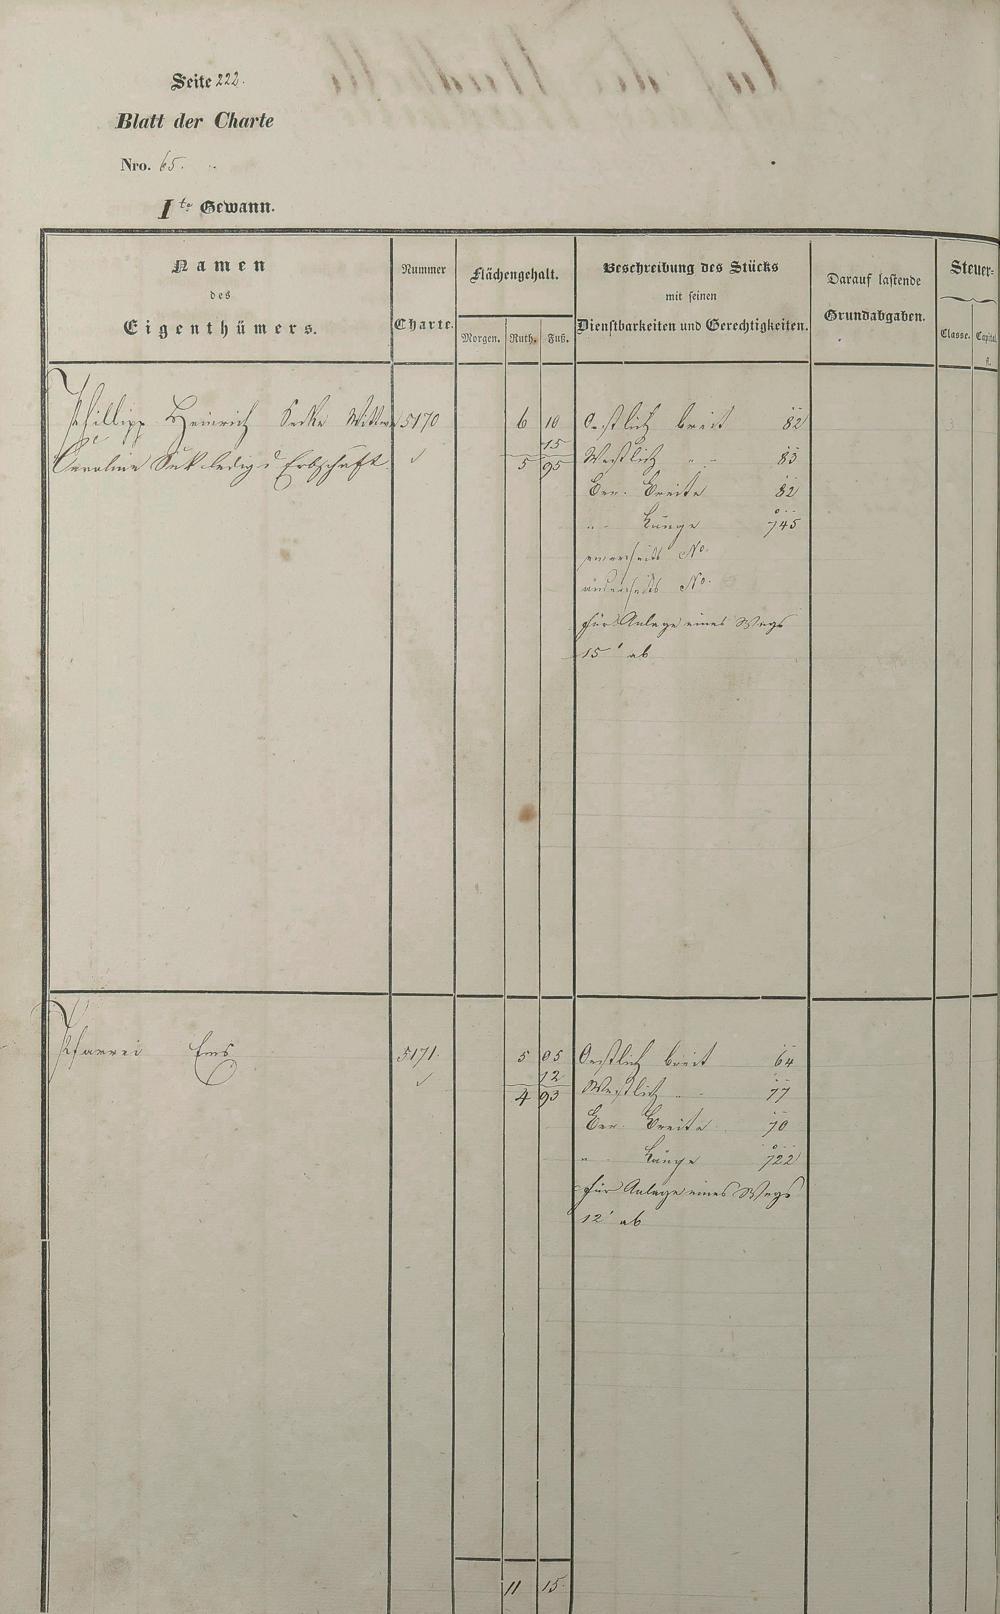 Seite 222.
Blatt der Charte
Nro. 65.
I te Gewann.
Namen
des
Eigenthümers.
Nummer
Charte.
Flächengehalt.
Morgen. Ruth. Fuß.
Beschreibung des Stücks
mit seinen
Dienstbarkeiten und Gerechtigkeiten.
Darauf lastende
Grundabgaben.
Steuer-
Classe. Capital
fl.
Phillipp Heinrich Wittwe 5170 6 10 Oestlich breit 82
15
Caroline ledig Erbschaft 5 95 Westlich " " 83
Ber. Breite 82
" Länge 745
einerseits No.
anderseits No.
für Anlage eines Wegs
15' ab
Pfarrei Ems 5171. 5 05 Oestlich breit 64
12
4 93 Westlich " " 77
Ber. Breite 70
" Länge 722
für Anlage eines Wegs
12' ab
11 15